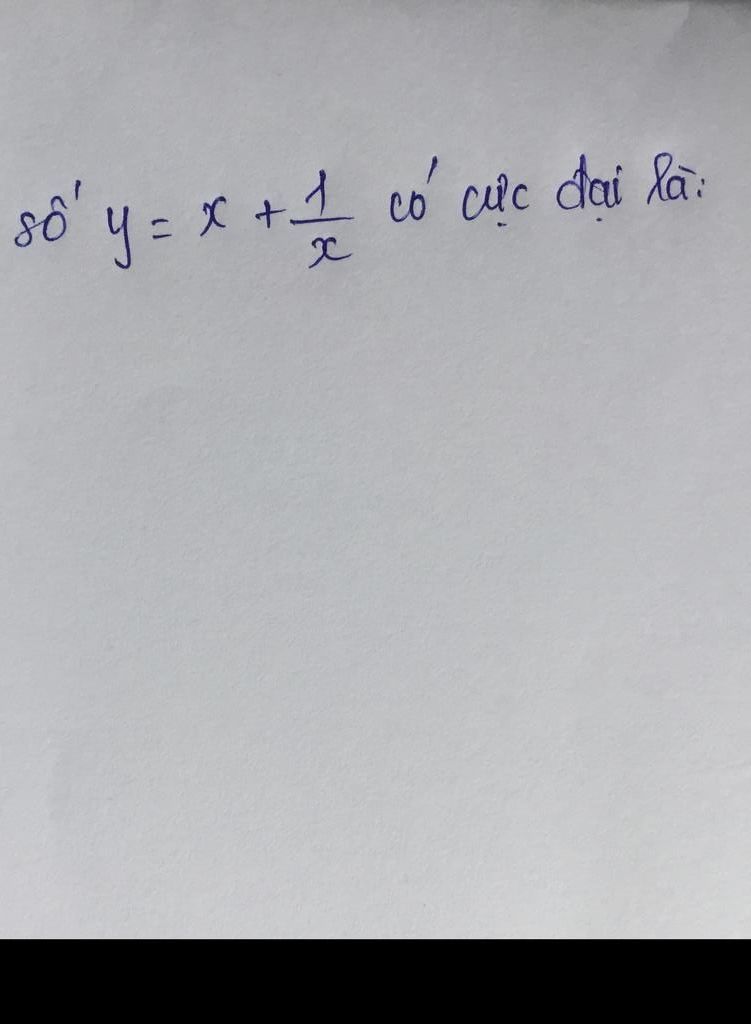 số y = x + 1/x có cực đại là: